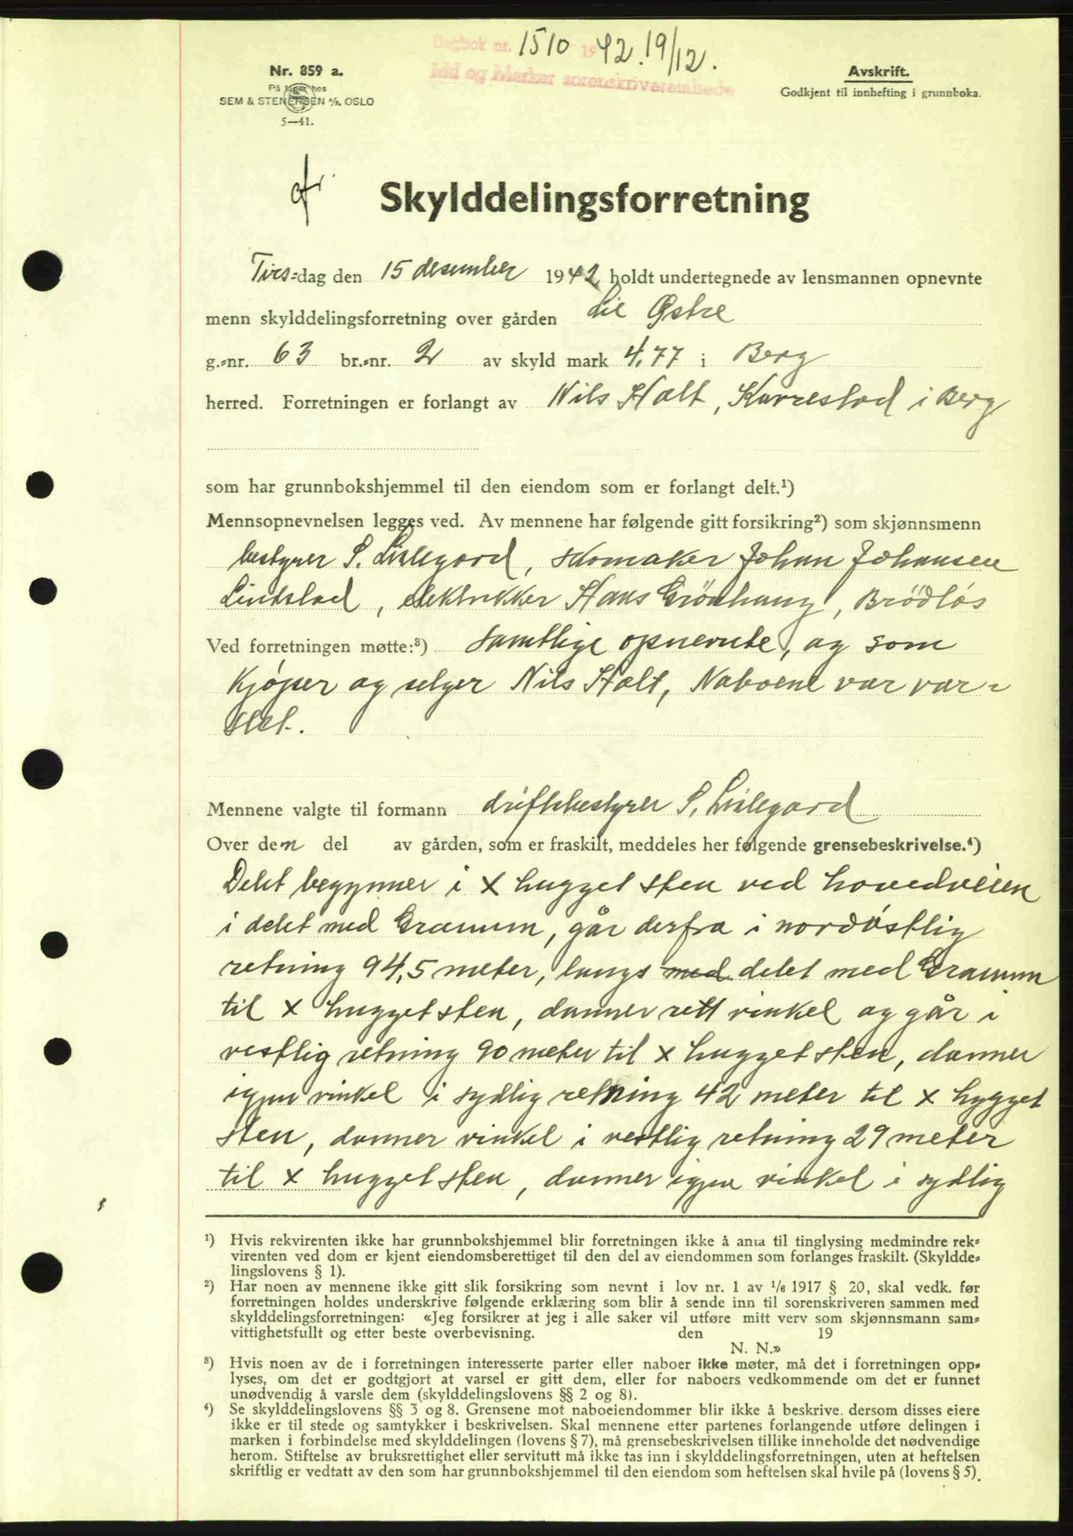 Dagbok nr. 1510 1942. 19/12.
Idd og Marker sorenskriverembede
Nr. 859 a.
På lager hos
SEM & STENERSEN A/S. OSLO
5—41.
Avskrift.
Godkjent til innhefting i grunnboka.
Skylddelingsforretning
Tirs-dag den 15 desember 1942 holdt undertegnede av lensmannen opnevnte
menn skylddelingsforretning over gården Lie Østre
g.-nr. 63 br.-nr. 2 av skyld mark 4,77 i Berg
herred. Forretningen er forlangt av Nils Holt, Karrestad i Berg
som har grunnbokshjemmel til den eiendom som er forlangt delt.¹)
Mennsopnevnelsen legges ved. Av mennene har følgende gitt forsikring²) som skjønnsmenn
bestyrer S. Lislegard, skomaker Johan Johansen
Lindstad, elektrikker Hans Grönhaug, Brödløs
Ved forretningen møtte:³) Samtlige opnevnte, og som
Kjøper og selger Nils Holt, Naboene var var-
slet.
Mennene valgte til formann driftsbestyrer S. Lislegard
Over den del av gården, som er fraskilt, meddeles her følgende grensebeskrivelse.⁴)
Delet begynner i x hugget sten ved hovedveien
i delet med Gramum, går derfra i nordöstlig
retning 94,5 meter, langs med delet med Gramum
til x hugget sten, danner rett vinkel og går i
vestlig retning 90 meter til x hugget sten, danner
igjen vinkel i sydlig retning 42 meter til x hygget
sten, danner vinkel i vestlig retning 29 meter
til x hugget sten, danner igjen vinkel i sydlig
¹) Hvis rekvirenten ikke har grunnbokshjemmel blir forretningen ikke å anta til tinglysing medmindre rek-
virenten ved dom er kjent eiendomsberettiget til den del av eiendommen som forlanges fraskilt. (Skyldde-
lingslovens § 1).
²) Har noen av mennene ikke gitt slik forsikring som nevnt i lov nr. 1 av 1/6 1917 § 20, skal vedk. før
forretningen holdes underskrive følgende erklæring som blir å sende inn til sorenskriveren sammen med
skylddelingsforretningen: «Jeg forsikrer at jeg i alle saker vil utføre mitt verv som skjønnsmann sam-
vittighetsfullt og etter beste overbevisning. den 19
N. N.»
³) Hvis noen av de i forretningen interesserte parter eller naboer ikke møter, må det i forretningen opp-
lyses, om det er godtgjort at varsel er gitt dem, eller for naboers vedkommende om det er funnet
unødvendig å varsle dem (skylddelingslovens §§ 2 og 8).
⁴) Se skylddelingslovens §§ 3 og 8. Grensene mot naboeiendommer blir ikke å beskrive, dersom disses eiere
ikke er til stede og samtykker i beskrivelsen. Skal mennene etter partenes forlangende utføre delingen i
marken i forbindelse med skylddelingen (lovens § 7), må grensebeskrivelsen tillike inneholde det nødvendige
herom. Stiftelse av bruksrettighet eller servitutt må ikke tas inn i skylddelingsforretningen, uten at heftelsen
skriftlig er vedtatt av den som har grunnbokshjemmel til den eiendom som heftelsen skal hvile på (lovens § 5).